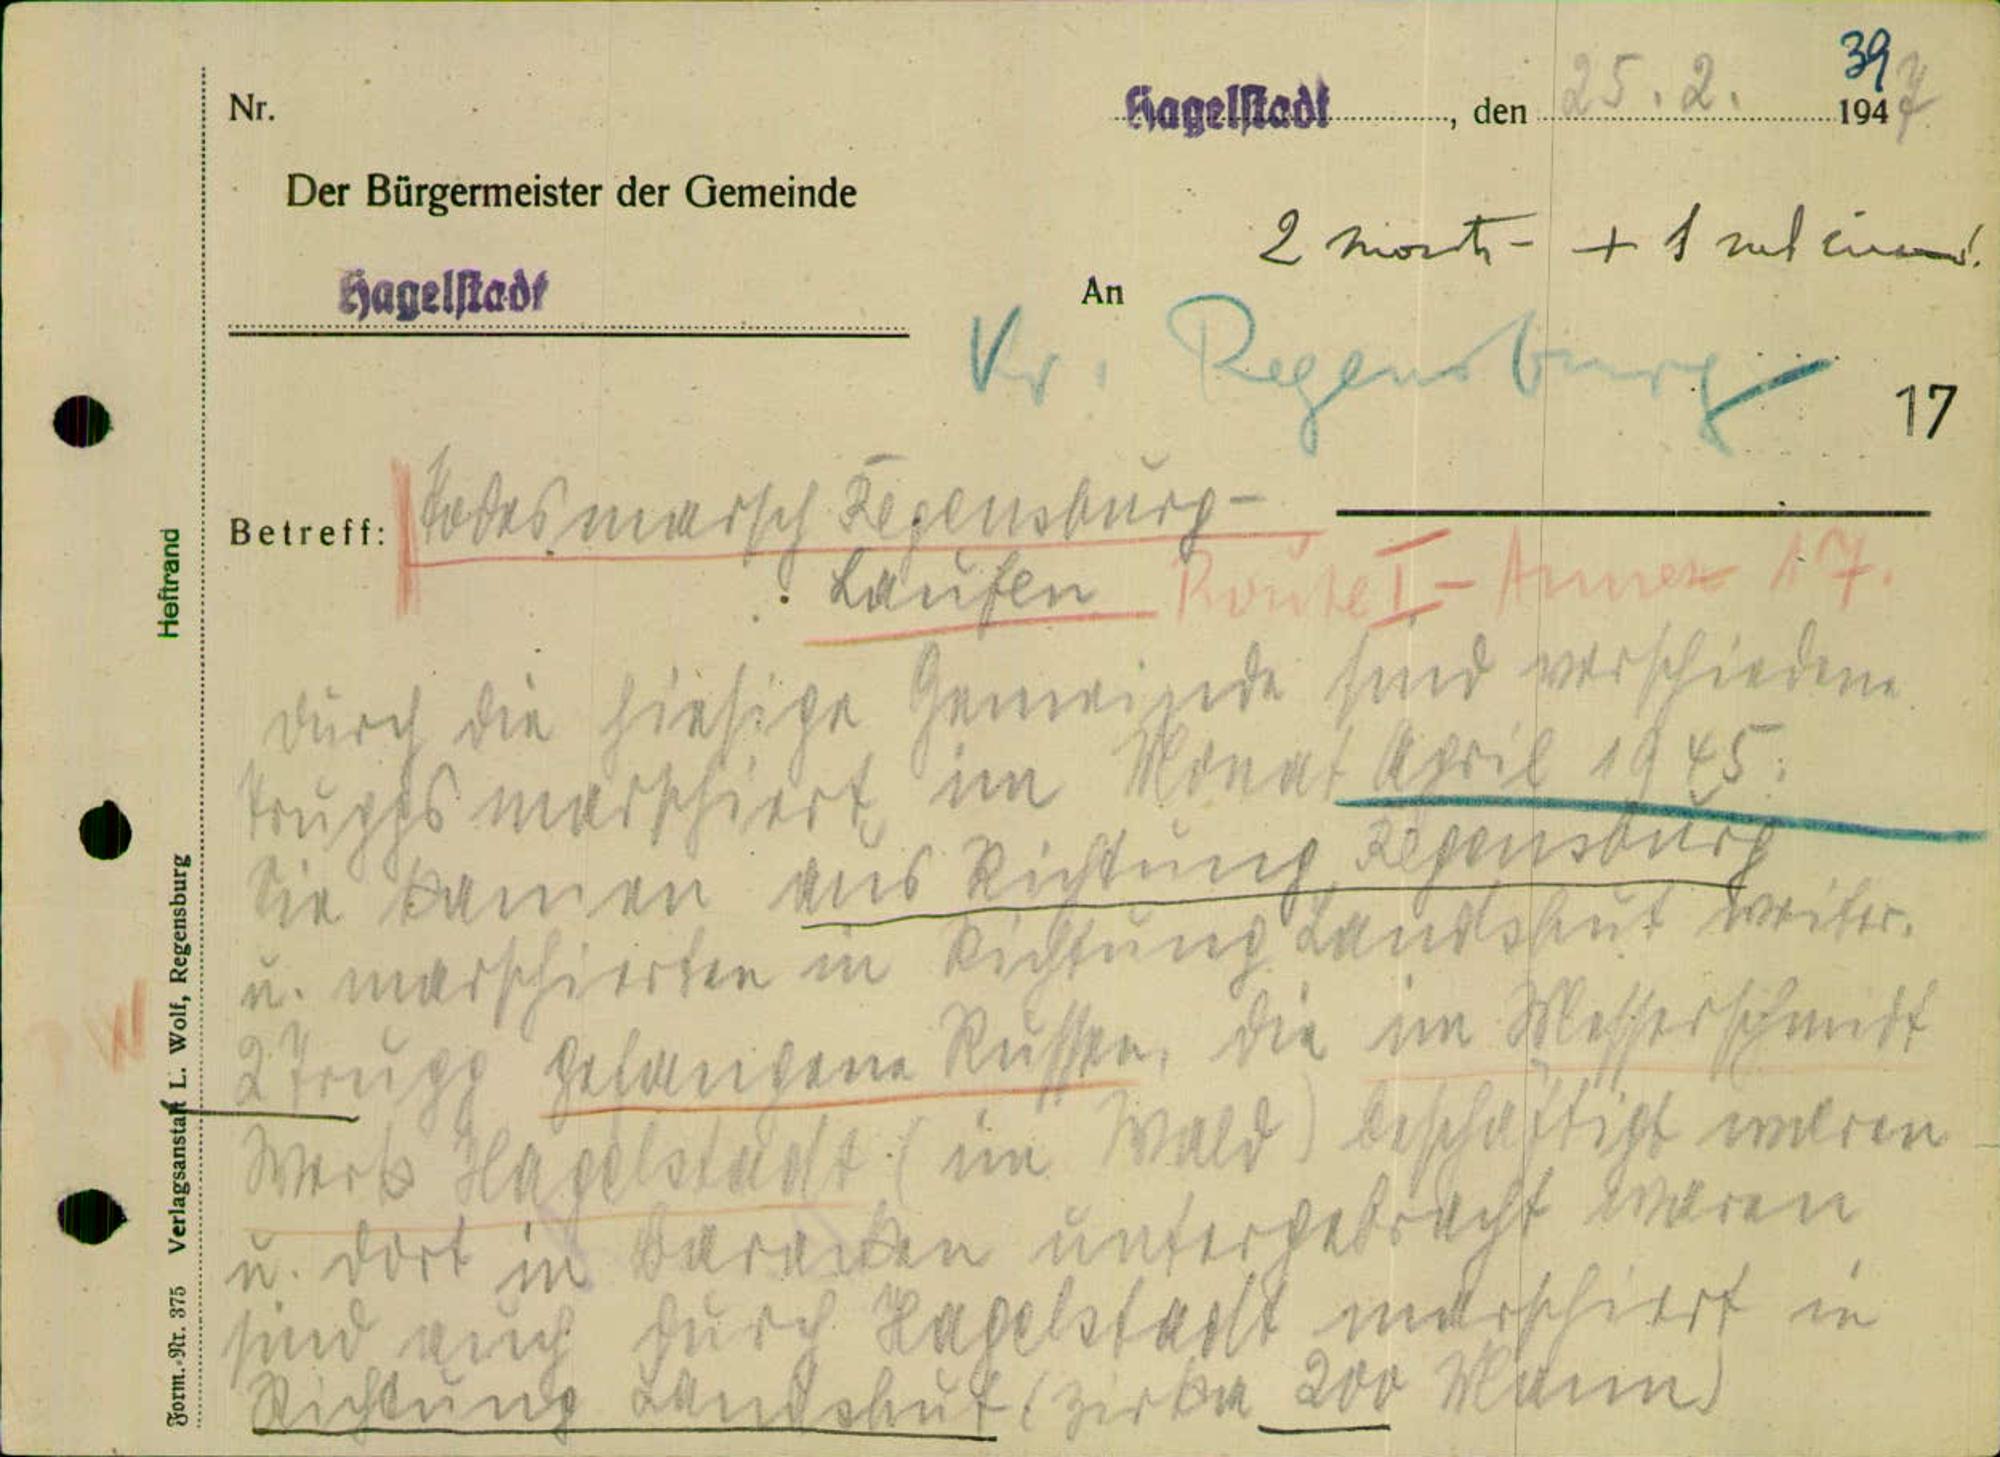 39
Nr.
Hagelstadt, den 25. 2. 1947
Der Bürgermeister der Gemeinde
Hagelstadt
2 + 1
An
Kr. Regensburg
17
Betreff: Todesmarsch Regensburg-
Laufen Route I - Annex 17.
durch die hiesige Gemeinde sind verschiedene
Trupps marschiert im Monat April 1945.
Sie kamen aus Richtung Regensburg
u. marschierten in Richtung Landshut weiter.
2 Trupp gefangene Russen, die im Messerschmidt
Werk Hagelstadt (im Wald) beschäftigt waren
u. dort in Baracken untergebracht waren
sind auch durch Hagelstadt marschiert in
Richtung Landshut (zirka 200 Mann)
Heftrand
PW
Form.-Nr. 375 Verlagsanstalt L. Wolf, Regensburg